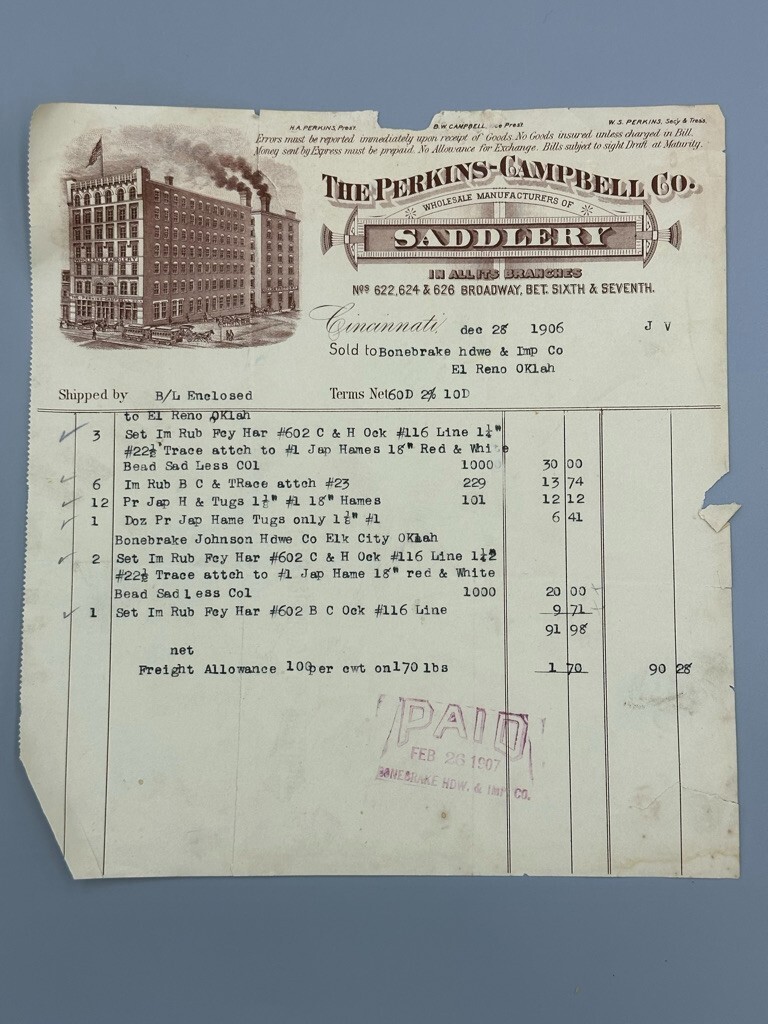 H.A. PERKINS, Prest. B.W. CAMPBELL, ce Prest. W.S. PERKINS, Secy & Treas.
Errors must be reported immediately upon receipt of Goods. No Goods insured unless charged in Bill.
Money sent by Express must be prepaid. No Allowance for Exchange. Bills subject to sight Draft at Maturity.
THE PERKINS-CAMPBELL CO.
WHOLESALE MANUFACTURERS OF
SADDLERY
IN ALL ITS BRANCHES
Nos 622, 624 & 626 BROADWAY, BET. SIXTH & SEVENTH.
Cincinnati, dec 28 1906 J V
Sold to Bonebrake hdwe & Imp Co
El Reno OKlah
Shipped by B/L Enclosed Terms Net 60D 2% 10D
to El Reno OKlah
3 Set Im Rub Fcy Har #602 C & H Ock #116 Line 1¼"
#22½ Trace attch to #1 Jap Hames 18" Red & White
Bead Sad Less COl 1000 30 00
6 Im Rub B C & TRace attch #23 229 13 74
12 Pr Jap H & Tugs 1½" #1 18" Hames 101 12 12
1 Doz Pr Jap Hame Tugs only 1½" #1 6 41
Bonebrake Johnson Hdwe Co Elk City OKlah
2 Set Im Rub Fcy Har #602 C & H Ock #116 Line
#22½ Trace attch to #1 Jap Hame 18" red & White
Bead Sad Less Col 1000 20 00
1 Set Im Rub Fcy Har #602 B C Ock #116 Line 9 71
91 98
net
Freight Allowance 100 per cwt on 170 lbs 1 70 90 28
PAID
FEB 26 1907
BONEBRAKE HDW. & IMP. CO.